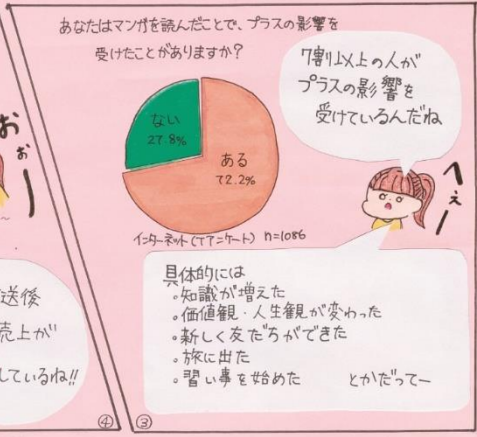 あなたはマンガを読んだことで、プラスの影響を
受けたことがありますか?
ない
27.8%
ある
72.2%
インターネット(でアンケート) n=1086
7割以上の人が
プラスの影響を
受けているんだね
へぇー
具体的には
。知識が増えた
。価値観・人生観が変わった
。新しく友だちができた
。旅に出た
。習い事を始めた とかだってー
③
おぉー
送後
売上が
しているね!!
④